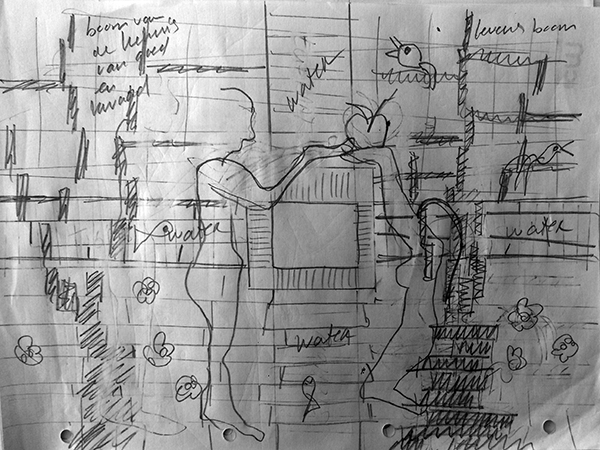 boom van
de kennis
van goed
en
kwaad
water
levens boom
water
water
water